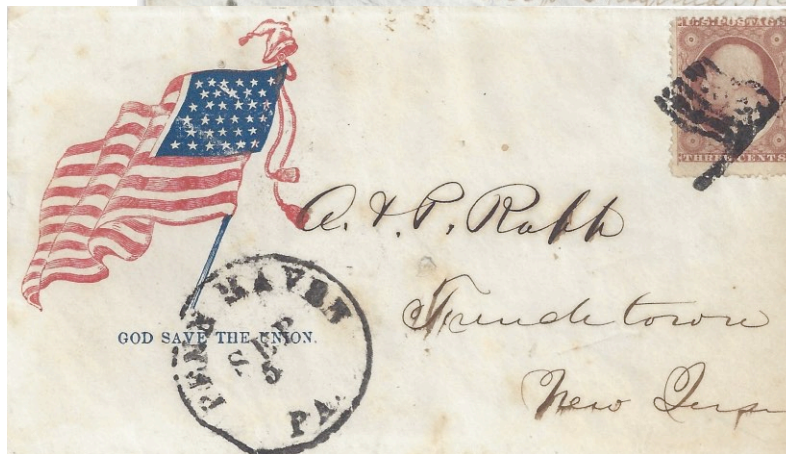 U.S. POSTAGE
THREE CENTS
A. & P. Robb
Frenchtown
New Jers
GOD SAVE THE UNION.
PENN HAVEN
SEP
5
PA.